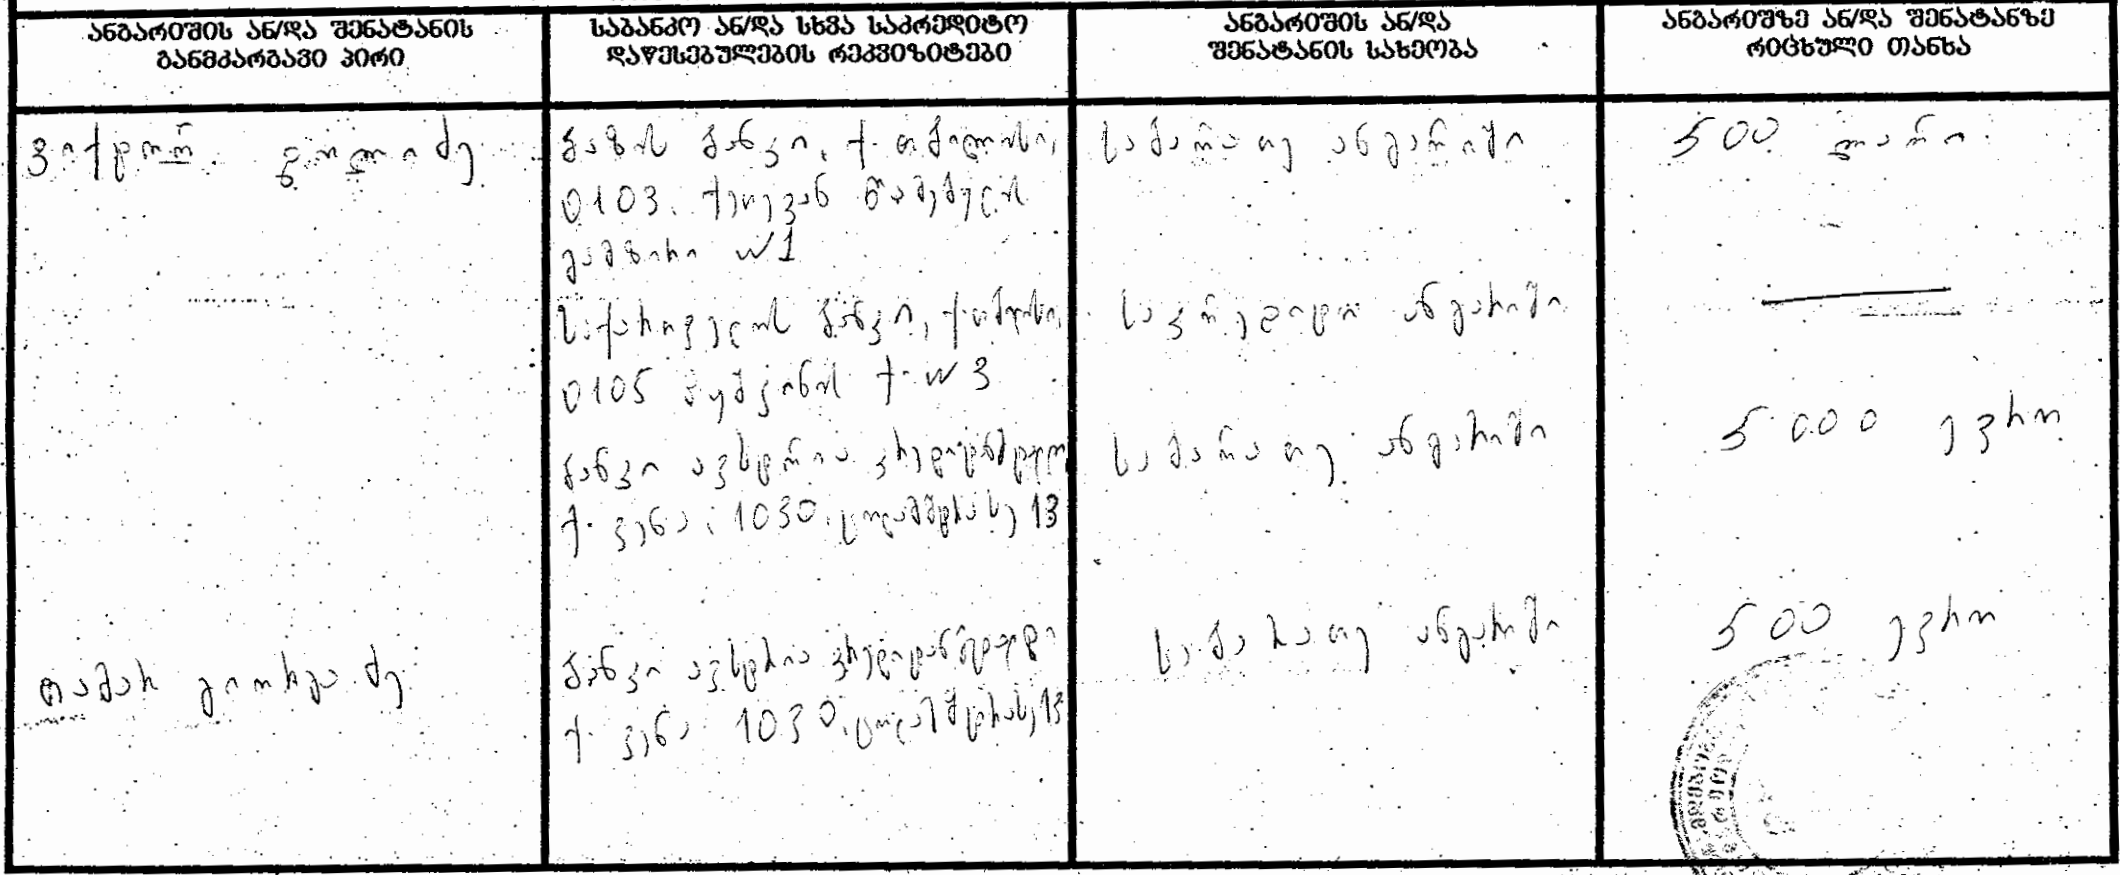 ანგარიშის ან/და შენატანის
განმკარგავი პირი
საბანკო ან/და სხვა საკრედიტო
დაწესებულების რეკვიზიტები
ანგარიშის ან/და
შენატანის სახეობა
ანგარიშზე ან/და შენატანზე
რიცხული თანხა
ვიქტორ დოლიძე
ბაზის ბანკი, ქ. თბილისი,
0103. ქეთევან წამებულის
გამზირი N1
საბარათე ანგარიში
500 ლარი
საქართველოს ბანკი, ქ. თბილისი,
0105 პუშკინის ქ. N 3
საკრედიტო ანგარიში
ბანკი ავსტრია
ქ. ვენა, 1030, 13
საბარათე ანგარიში
5000 ევრო
თამარ გიორგაძე
ბანკი ავსტრია
ქ. ვენა 1030, 13
საბარათე ანგარიში
500 ევრო